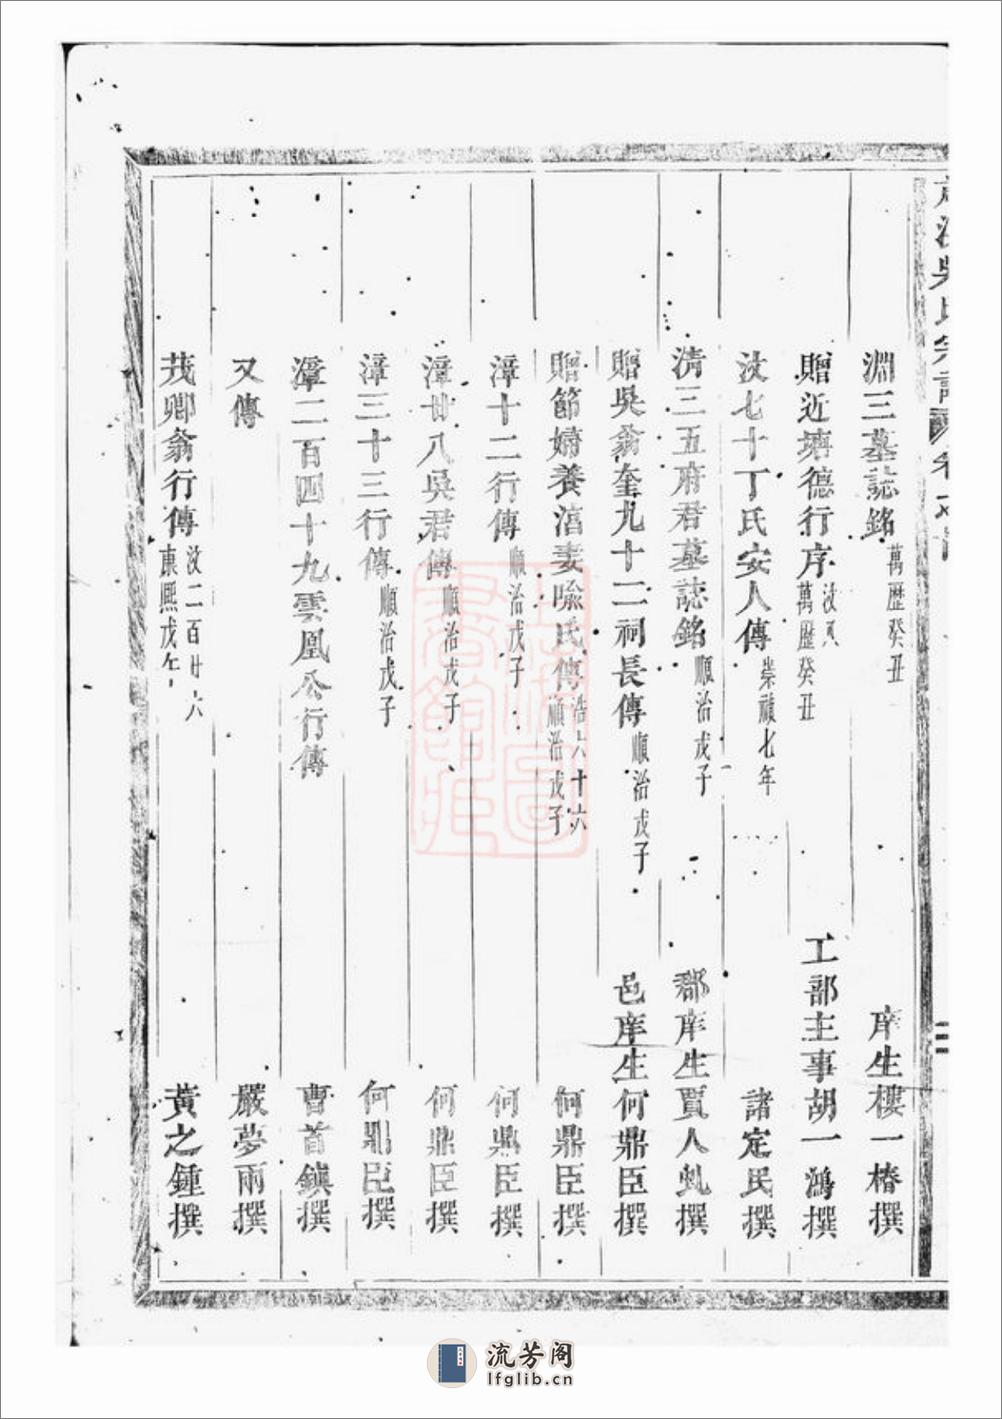 吳氏宗譜
淵三墓誌銘 萬歷癸丑 庠生樓一椿撰
贈近塘德行序 汝八 萬歷癸丑 工部主事胡一鴻撰
汝七十丁氏安人傳 崇禎七年 諸定民撰
清三五府君墓誌銘 順治戊子 郡庠生賈人虬撰
贈吳翁奎九十二祠長傳 順治戊子 邑庠生何鼎臣撰
贈節婦養湻妻喻氏傳 浩六十六 順治戊子 何鼎臣撰
漳十二行傳 順治戊子 何鼎臣撰
漳廿八吳君傳 順治戊子 何鼎臣撰
漳三十三行傳 順治戊子 何鼎臣撰
漳二百四十九雲凰公行傳 曹首鎮撰
又傳 嚴夢雨撰
茂卿翁行傳 汝二百廿六 康熙戊午 黃之鍾撰
流芳阁
lfglib.cn